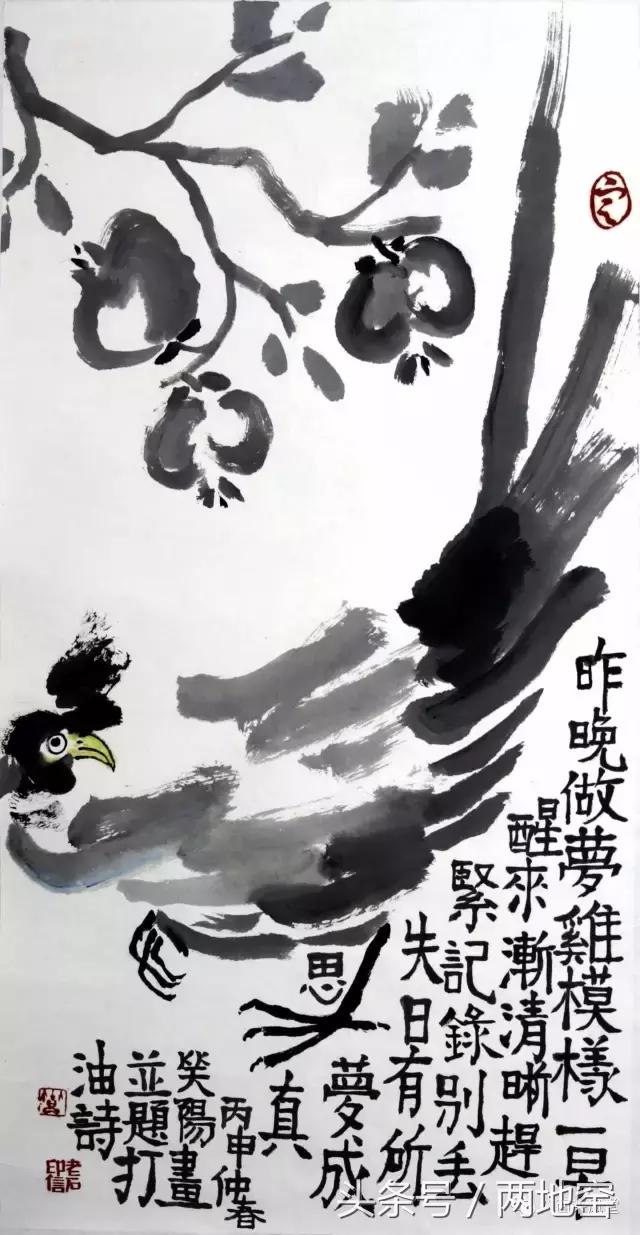 昨晚做夢雞模樣一
醒來漸清晰趕
緊記錄別丟
失日有所
思
夢成
真
丙申仲春
陽畫
並題打
油詩
头条号 / 两地室